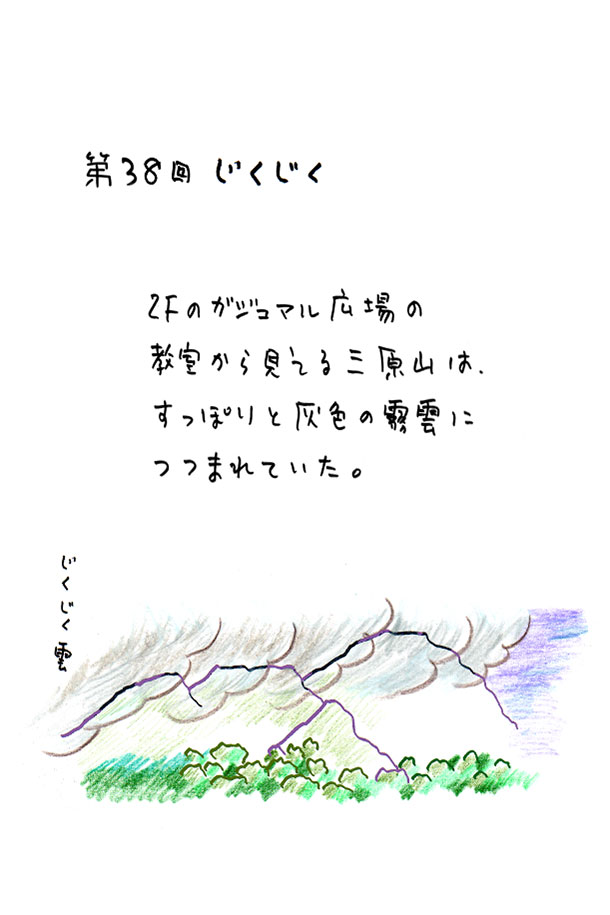 第38回 じくじく
2Fのガジュマル広場の
教室から見える三原山は、
すっぽりと灰色の霧雲に
つつまれていた。
じくじく雲